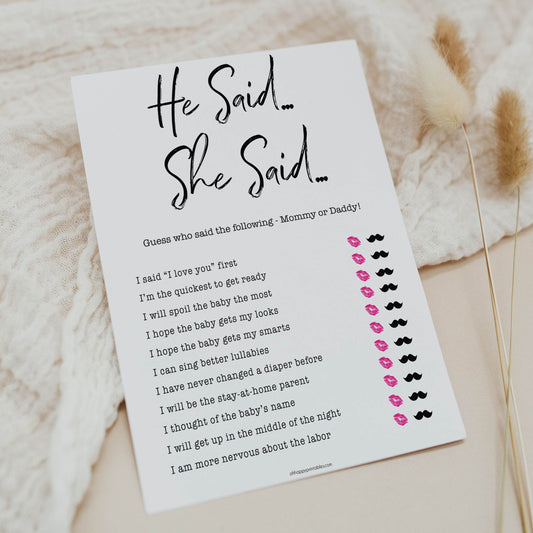 He Said...
She Said...
Guess who said the following - Mommy or Daddy!
I said “I love you” first
I'm the quickest to get ready
I will spoil the baby the most
I hope the baby gets my looks
I hope the baby gets my smarts
I can sing better lullabies
I have never changed a diaper before
I will be the stay-at-home parent
I thought of the baby's name
I will get up in the middle of the night
I am more nervous about the labor
ohhappyprintables.com